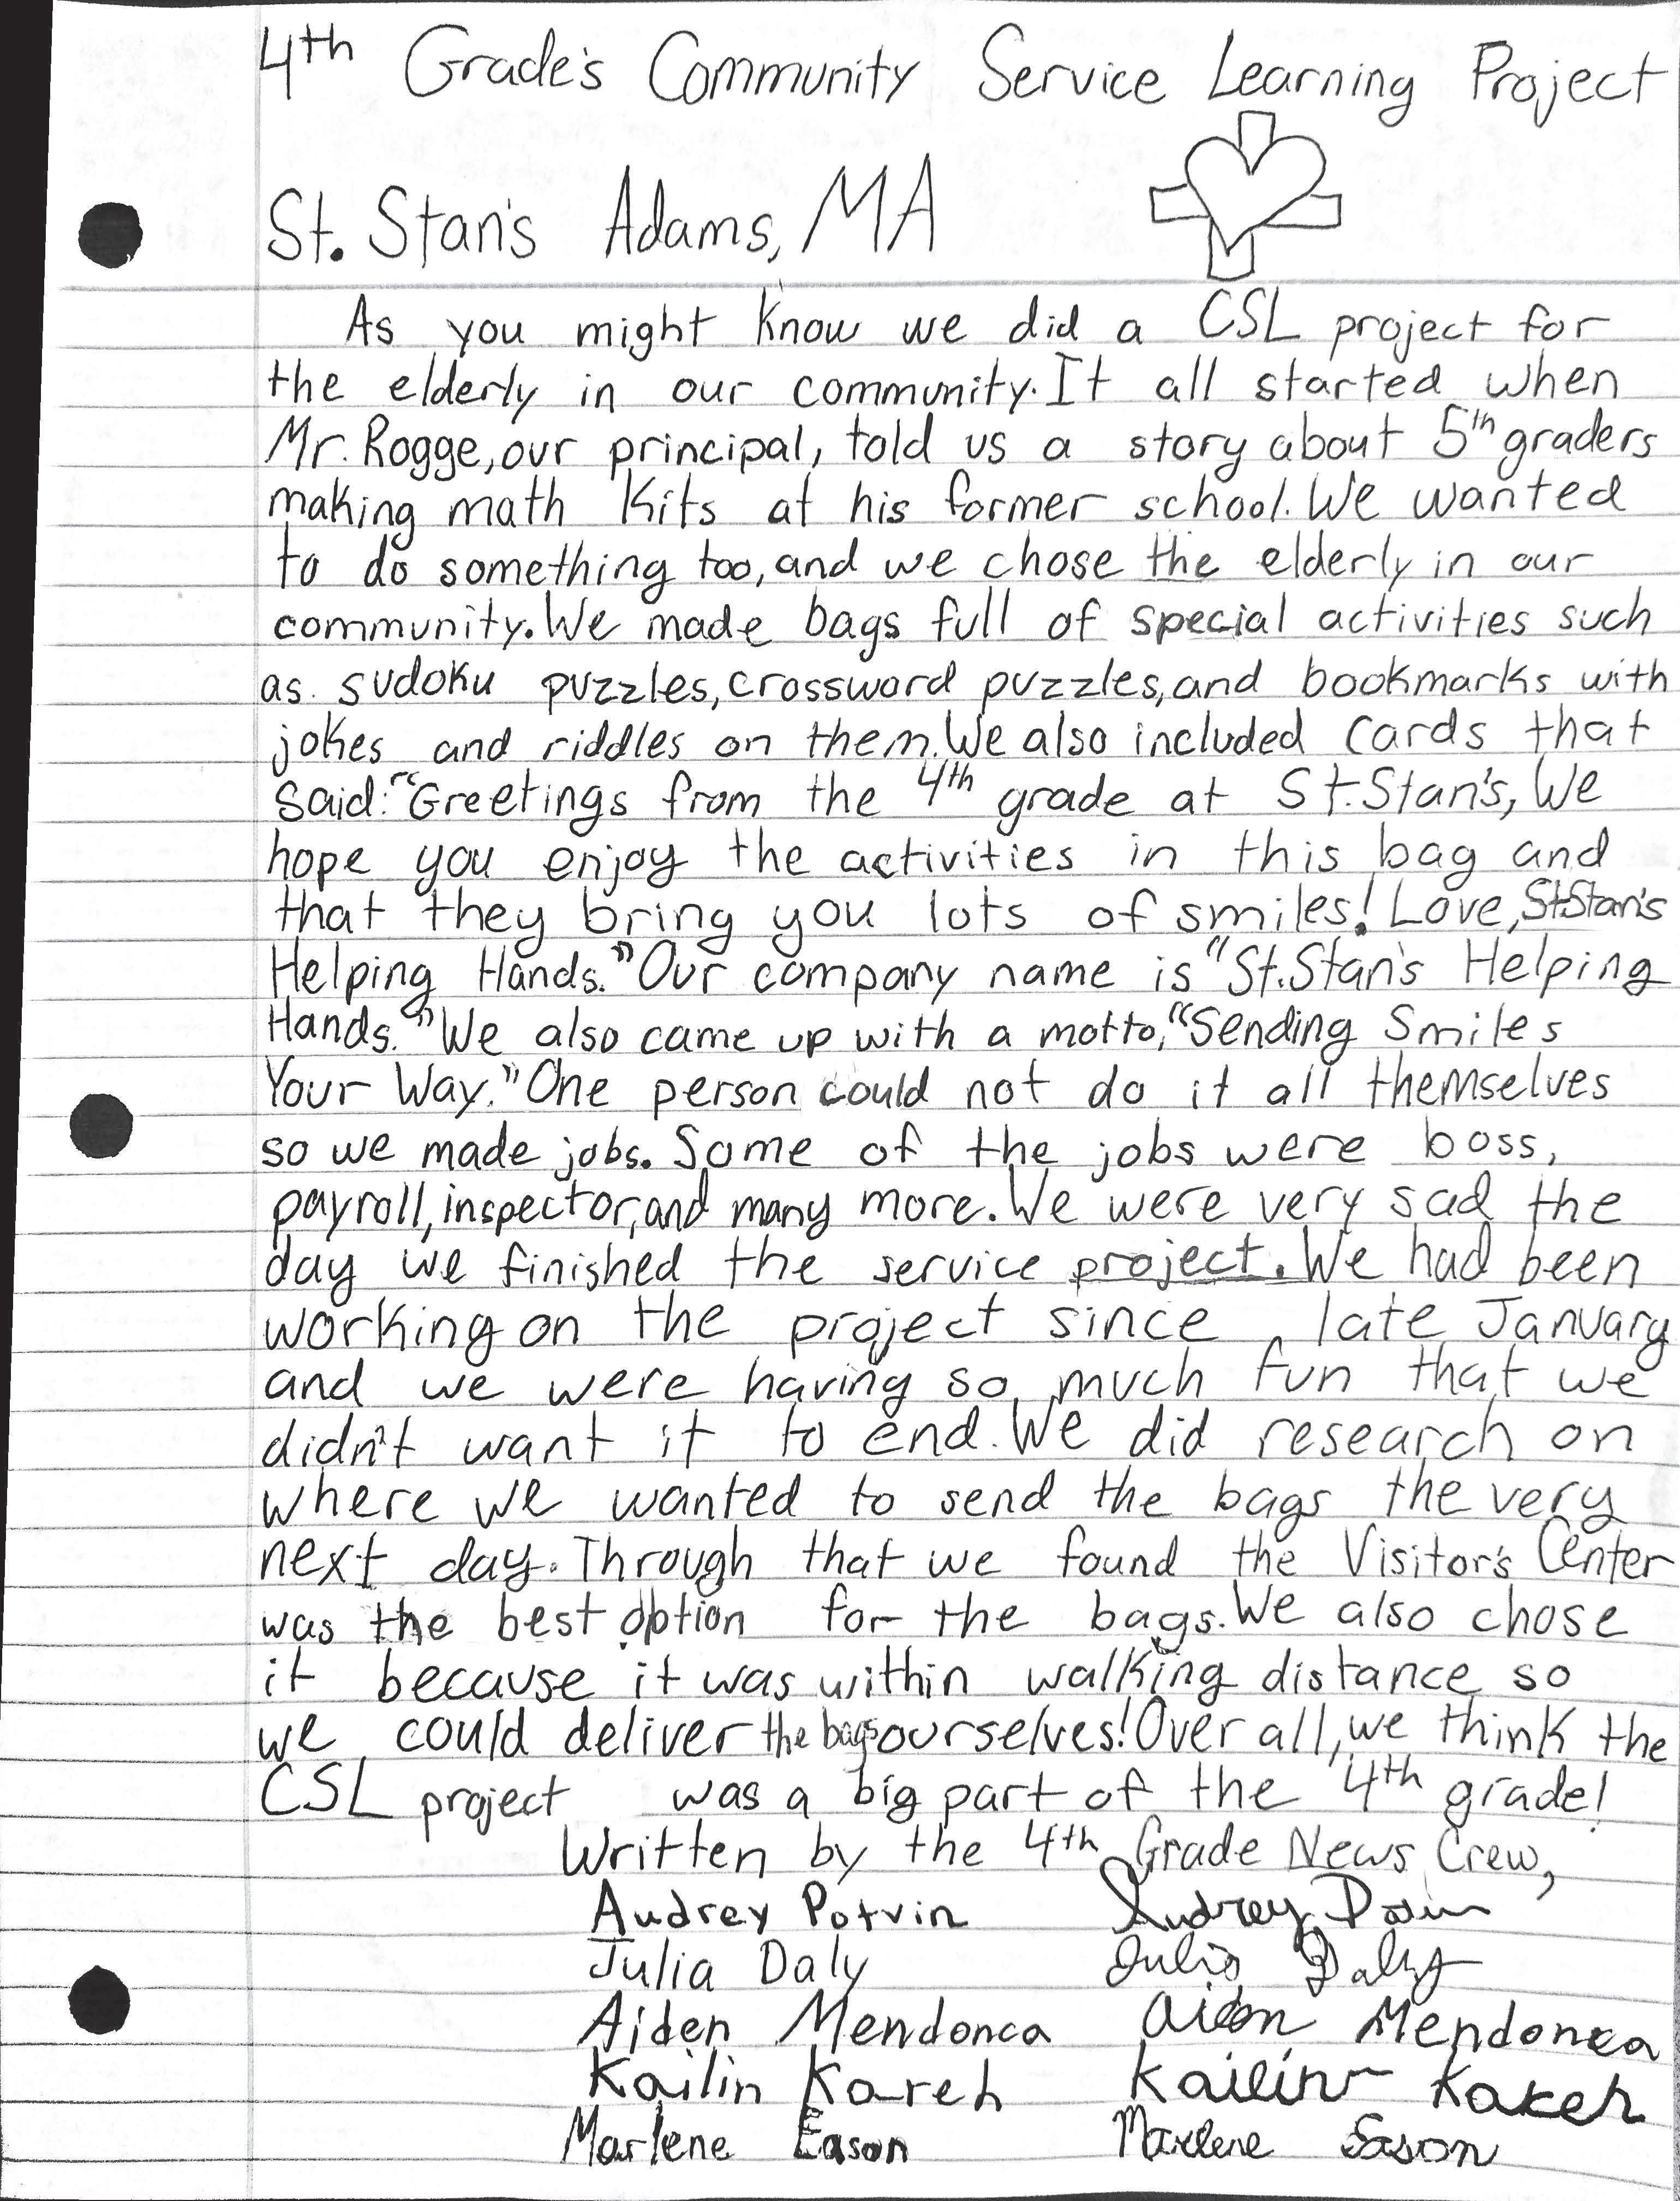 4th Grade's Community Service Learning Project
St. Stan's Adams, MA
As you might know we did a CSL project for
the elderly in our community. It all started when
Mr. Rogge, our principal, told us a story about 5th graders
making math kits at his former school. We wanted
to do something too, and we chose the elderly in our
community. We made bags full of special activities such
as sudoku puzzles, crossword puzzles, and bookmarks with
jokes and riddles on them. We also included cards that
said: "Greetings from the 4th grade at St. Stan's, We
hope you enjoy the activities in this bag and
that they bring you lots of smiles! Love, St. Stan's
Helping Hands." Our company name is "St. Stan's Helping
Hands." We also came up with a motto, "Sending Smiles
Your Way." One person could not do it all themselves
so we made jobs. Some of the jobs were boss,
payroll, inspector, and many more. We were very sad the
day we finished the service project. We had been
working on the project since late January
and we were having so much fun that we
didn't want it to end. We did research on
where we wanted to send the bags the very
next day. Through that we found the Visitor's Center
was the best option for the bags. We also chose
it because it was within walking distance so
we could deliver the bags ourselves! Over all, we think the
CSL project was a big part of the 4th grade!
Written by the 4th Grade News Crew,
Audrey Potvin Audrey Potvin
Julia Daly Julia Daly
Aiden Mendonca Aiden Mendonca
Kailin Kareh Kailin Kareh
Marlene Eason Marlene Eason